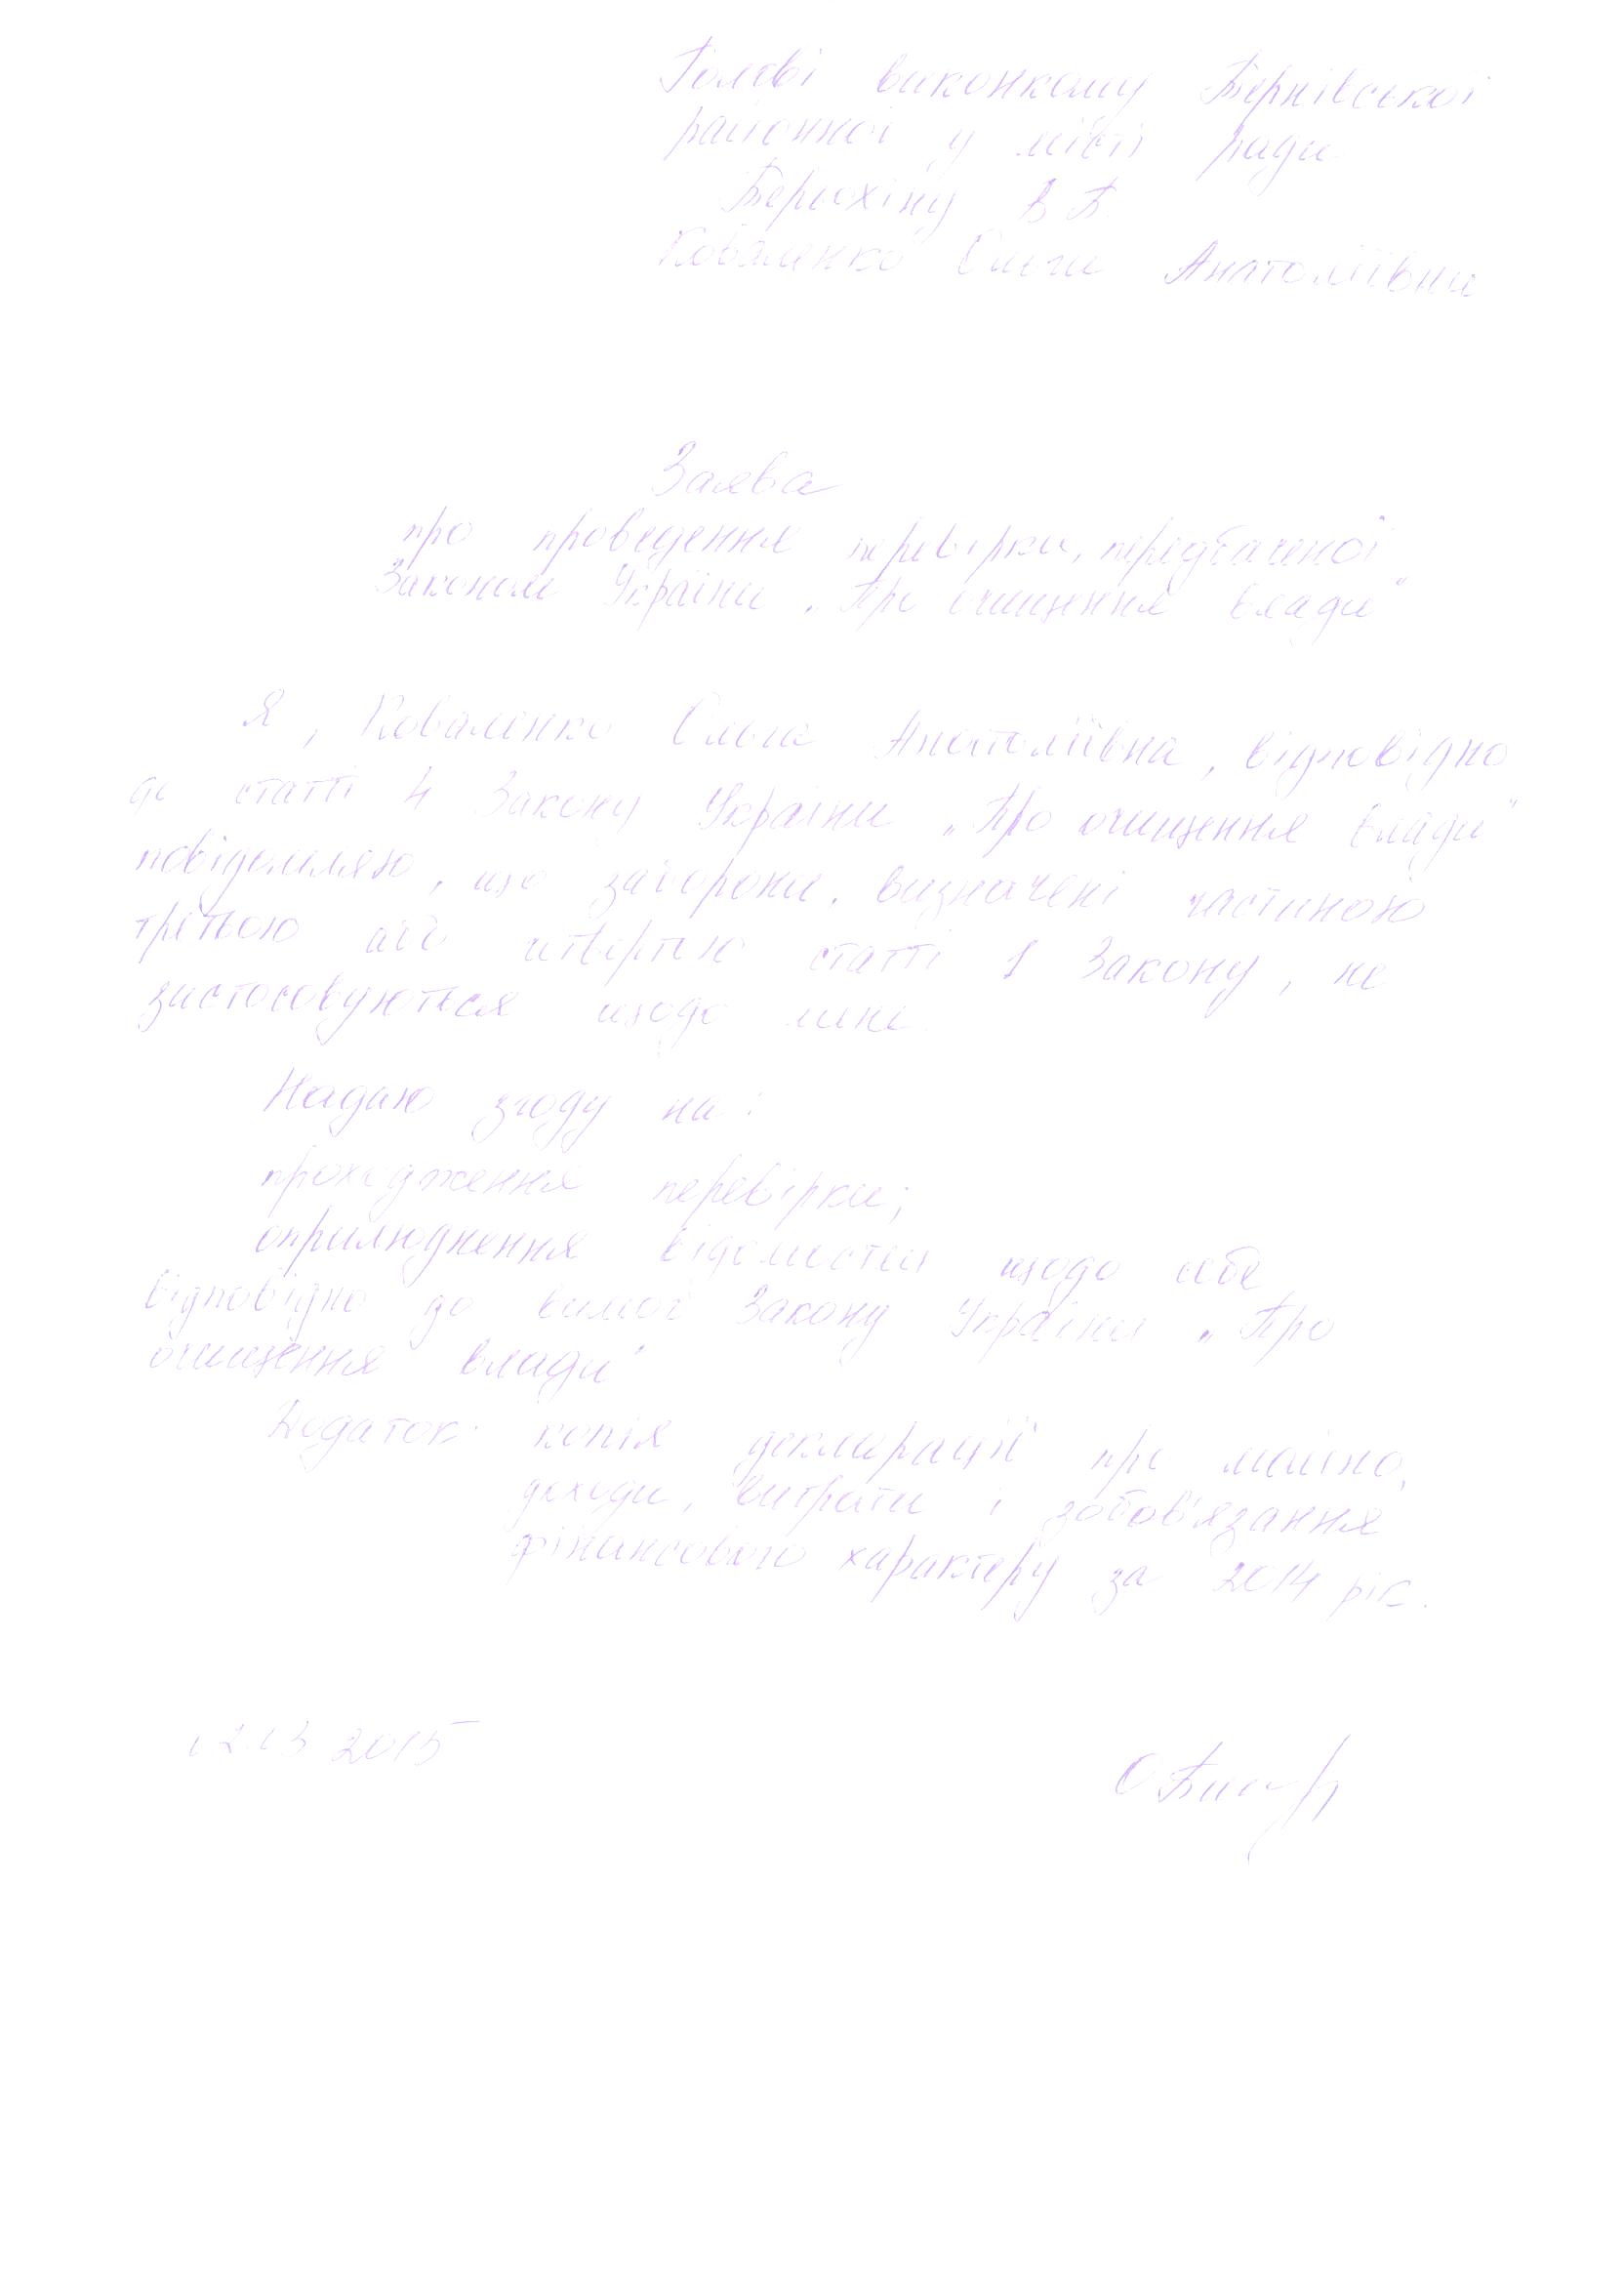 Голові виконкому Тернівської
районної у місті ради
Терьохіну В Б
Коваленко Ольги Анатоліївни
Заява
про проведення перевірки, передбаченої
Законом України „Про очищення влади"
Я, Коваленко Ольга Анатоліївна, відповідно
до статті 4 Закону України „Про очищення влади"
повідомляю, що заборони, визначені частиною
третьою або четвертою статті 1 Закону, не
застосовуються щодо мене
Надаю згоду на:
проходження перевірки;
оприлюднення відомостей щодо себе
відповідно до вимог Закону України „Про
очищення влади"
Додаток: копія декларації про майно,
доходи, витрати і зобов'язання
фінансового характеру за 2014 рік.
02.03 2015